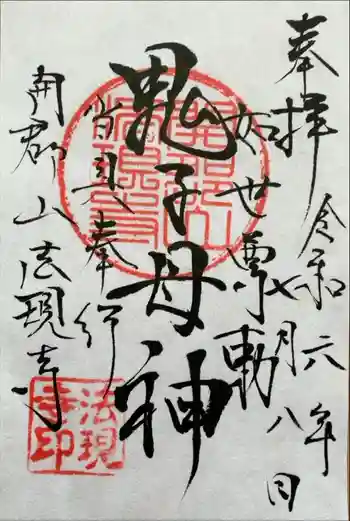 奉拝
令和六年
七月八日
如世尊勅
鬼子母神
當具奉行
開都山法現寺
法現
寺印